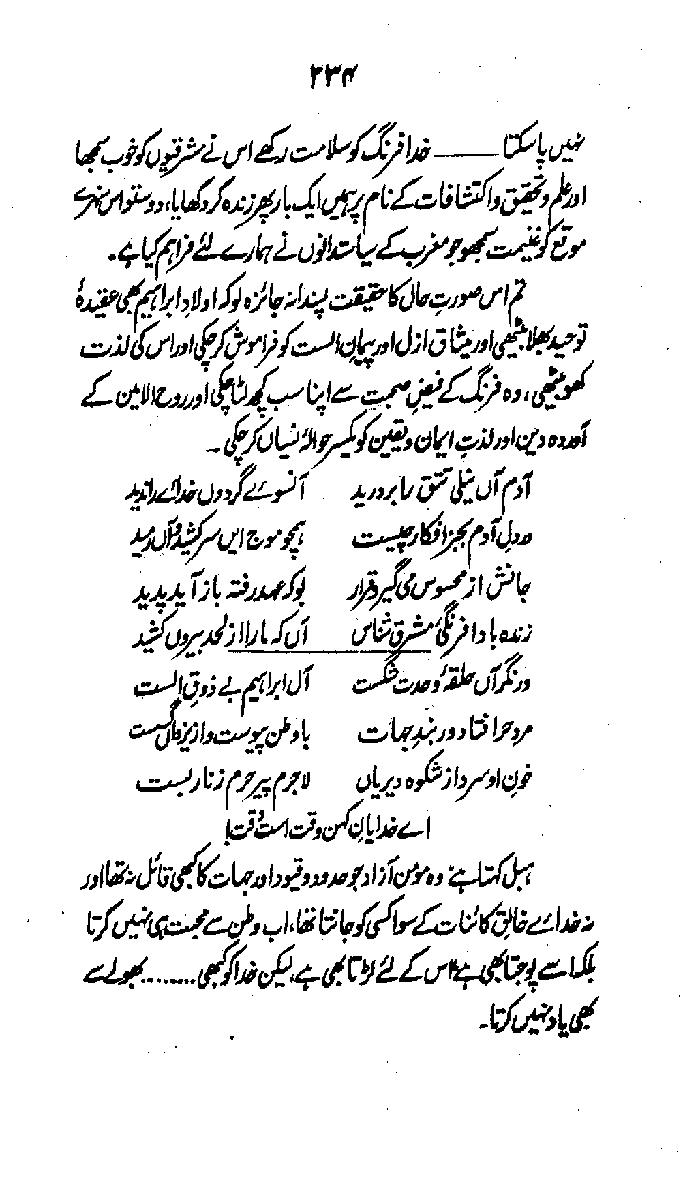 ۲۳۴
نہیں پا سکتا ــــــ خدا فرنگ کو سلامت رکھے اس نے مشرقیوں کو خوب سمجھا
اور علم و تحقیق و اکتشافات کے نام پر ہمیں ایک بار پھر زندہ کر دکھایا، دوستو اس سنہرے
موقع کو غنیمت سمجھو جو مغرب کے سیاستدانوں نے ہمارے لئے فراہم کیا ہے۔
تم اس صورتِ حال کا حقیقت پسندانہ جائزہ لو کہ اولادِ ابراہیم بھی عقیدۂ
توحید بھلا بیٹھی اور میثاق ازل اور پیمانِ الست کو فراموش کر چکی اور اس کی لذت
کھو بیٹھی، وہ فرنگ کے فیضِ صحبت سے اپنا سب کچھ لٹا چکی اور روح الامین کے
آوردہ دین اور لذتِ ایمان و یقین کو یکسر حوالۂ نسیاں کر چکی۔
آدم آں نیلی تتق را بر درید آنسوئے گردوں خدائے را ندید
در دلِ آدم بجز افکار چیست ہمچو موج ایں سر کشید و آں رمید
جانش از محسوس می گیرد قرار بو کہ عہدِ رفتہ باز آید پدید
زندہ باد افرنگیٔ مشرق شناس آں کہ ما را از لحد بیروں کشید
در نگر آں حلقۂ وحدت شکست آلِ ابراہیم بے ذوقِ الست
مردِ حر افتاد در بندِ جہات با وطن پیوست و از یزداں گسست
خونِ او سرد از شکوہ دیریاں لاجرم پیرِ حرم زنار بست
اے خدایانِ کہن وقت است وقت!
ہبل کہتا ہے: وہ مومن آزاد جو حدود و قیود اور جہات کا کبھی قائل نہ تھا اور
نہ خدائے خالق کائنات کے سوا کسی کو جانتا تھا، اب وطن سے محبت ہی نہیں کرتا
بلکہ اسے پوجتا بھی ہے، اس کے لئے لڑتا بھی ہے، لیکن خدا کو کبھی........ بھولے سے
بھی یاد نہیں کرتا۔